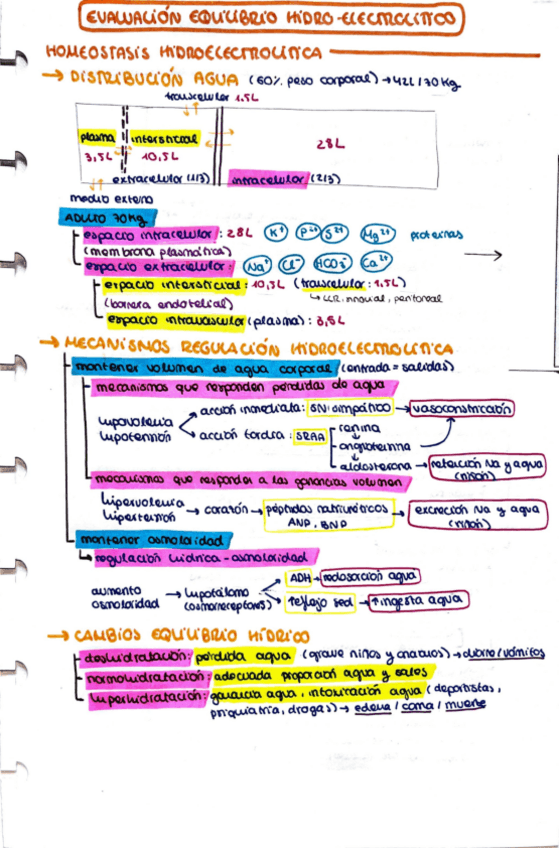 EVALUACIÓN EQUILIBRIO HIDRO-ELECTROLÍTICO
HOMEOSTASIS HIDROELECTROLÍTICA
→ DISTRIBUCIÓN AGUA (60% peso corporal) → 42L/70kg
transcelular 1,5L
plasma intersticial 28L
3,5L 10,5L
extracelular (1/3) intracelular (2/3)
medio externo
ADULTO 70kg
espacio intracelular: 28L K+ Mg2+ proteínas
(membrana plasmática)
espacio extracelular: Na+ Cl- HCO3- Ca2+
espacio intersticial: 10,5L (transcelular: 1,5L)
(barrera endotelial) peritoneal
espacio intravascular (plasma): 3,5L
→ MECANISMOS REGULACIÓN HIDROELECTROLÍTICA
mantener volumen de agua corporal (entrada = salidas)
mecanismos que responden pérdidas de agua
hipovolemia acción inmediata: SN simpático → vasoconstricción
hipotensión acción tardía: SRAA renina
angiotensina
aldosterona → retención Na y agua
(riñón)
mecanismos que responden a las ganancias volumen
hipervolemia → corazón → péptidos natriuréticos → excreción Na y agua
hipertensión ANP, BNP (riñón)
mantener osmolaridad
regulación hídrica - osmolaridad
aumento → hipotálamo ADH → reabsorción agua
osmolaridad (osmorreceptores) reflejo sed → ↑ ingesta agua
→ CAMBIOS EQUILIBRIO HÍDRICO
deshidratación: pérdida agua (grave niños y ancianos) → diarrea/vómitos
normohidratación: adecuada proporción agua y sales
hiperhidratación: ganancia agua, intoxicación agua (deportistas,
psiquiatría, drogas) → edema / coma / muerte